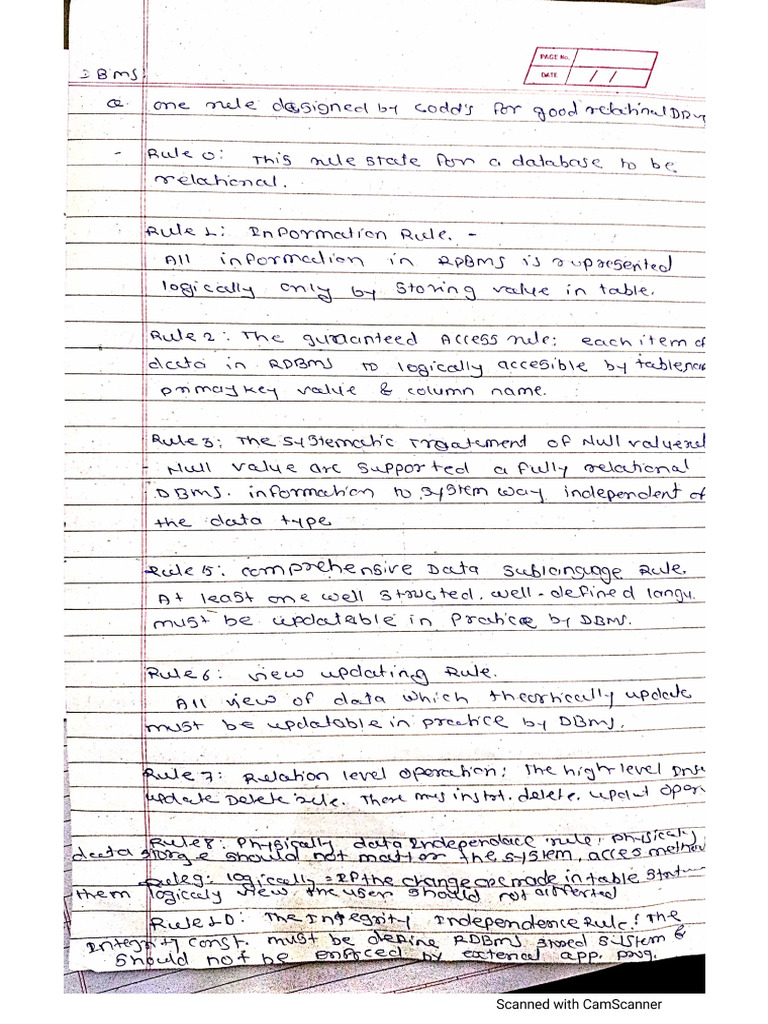 PAGE No.
DATE / /
DBMS:
Q. one rule designed by codd's for good relatinal
- Rule 0: This rule state for a database to be
relational.
Rule 1: Information Rule. -
All information in RDBMS is rupresented
logically only by storing value in table.
Rule 2: The guranteed Access rule: each item
data in RDBMS to logically accesible by
primary key value & column name.
Rule 3: The systematic Treatement of Null
- Null value are supported a fully relational
DBMS. information to system way independent of
the data type
Rule 5: comprehensive Data sublanguage Rule.
At least one well structed. well-defined langu.
must be updatable in Pratice by DBMS.
Rule 6: view updating Rule.
All view of data which theortically update
must be updatable in preatice by DBMS.
Rule 7: Relation level operation: The high-level
update Delete rule. There mus inst. delete. updat oper
Rule 8: Physically data Independace rule: physically
data storge should not matter the system, acces
Rule 9: logically = If the change are made in table
them logicaly view the user should not
Rule 10: The Integrity Independence Rule: The
Integrity const. must be define RDBMS stored system &
should not be enforced by external app. prog.
Scanned with CamScanner